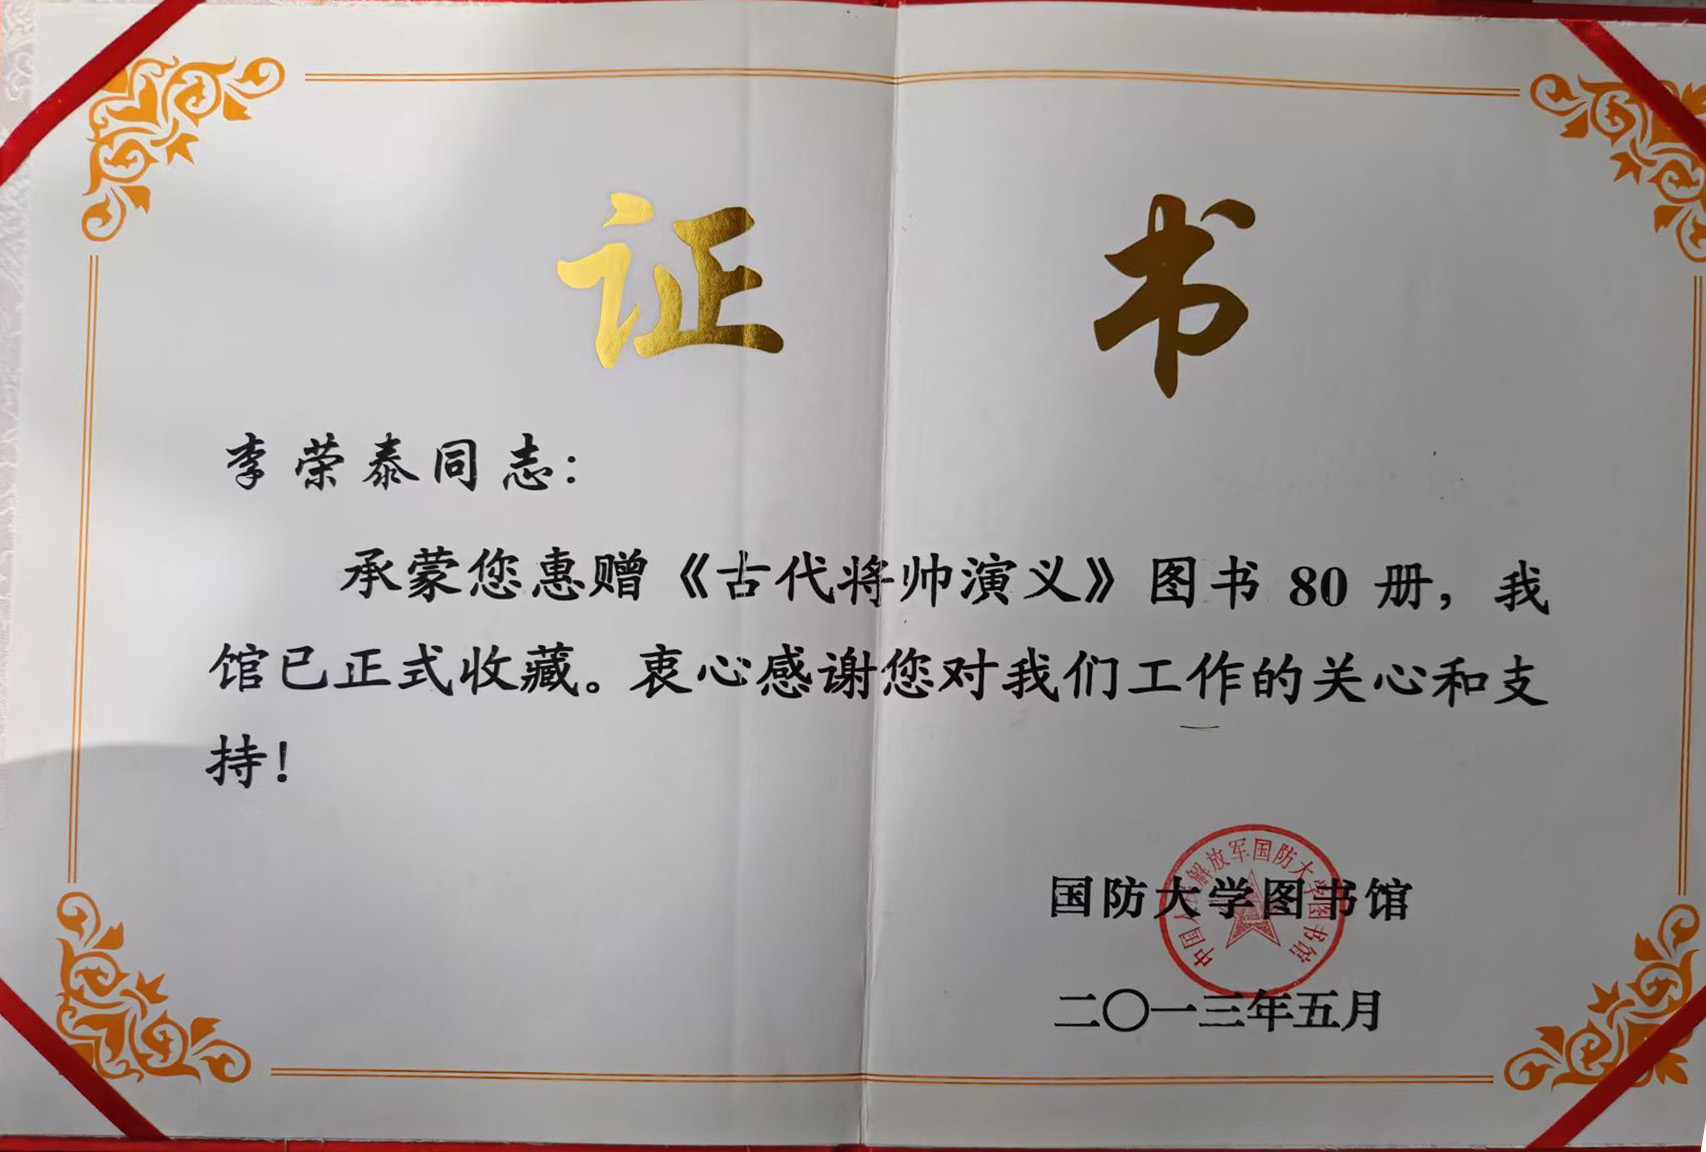 证书
李荣泰同志：
承蒙您惠赠《古代将帅演义》图书 80 册，我
馆已正式收藏。衷心感谢您对我们工作的关心和支
持！
中国人民解放军国防大学图书馆
国防大学图书馆
二〇一三年五月